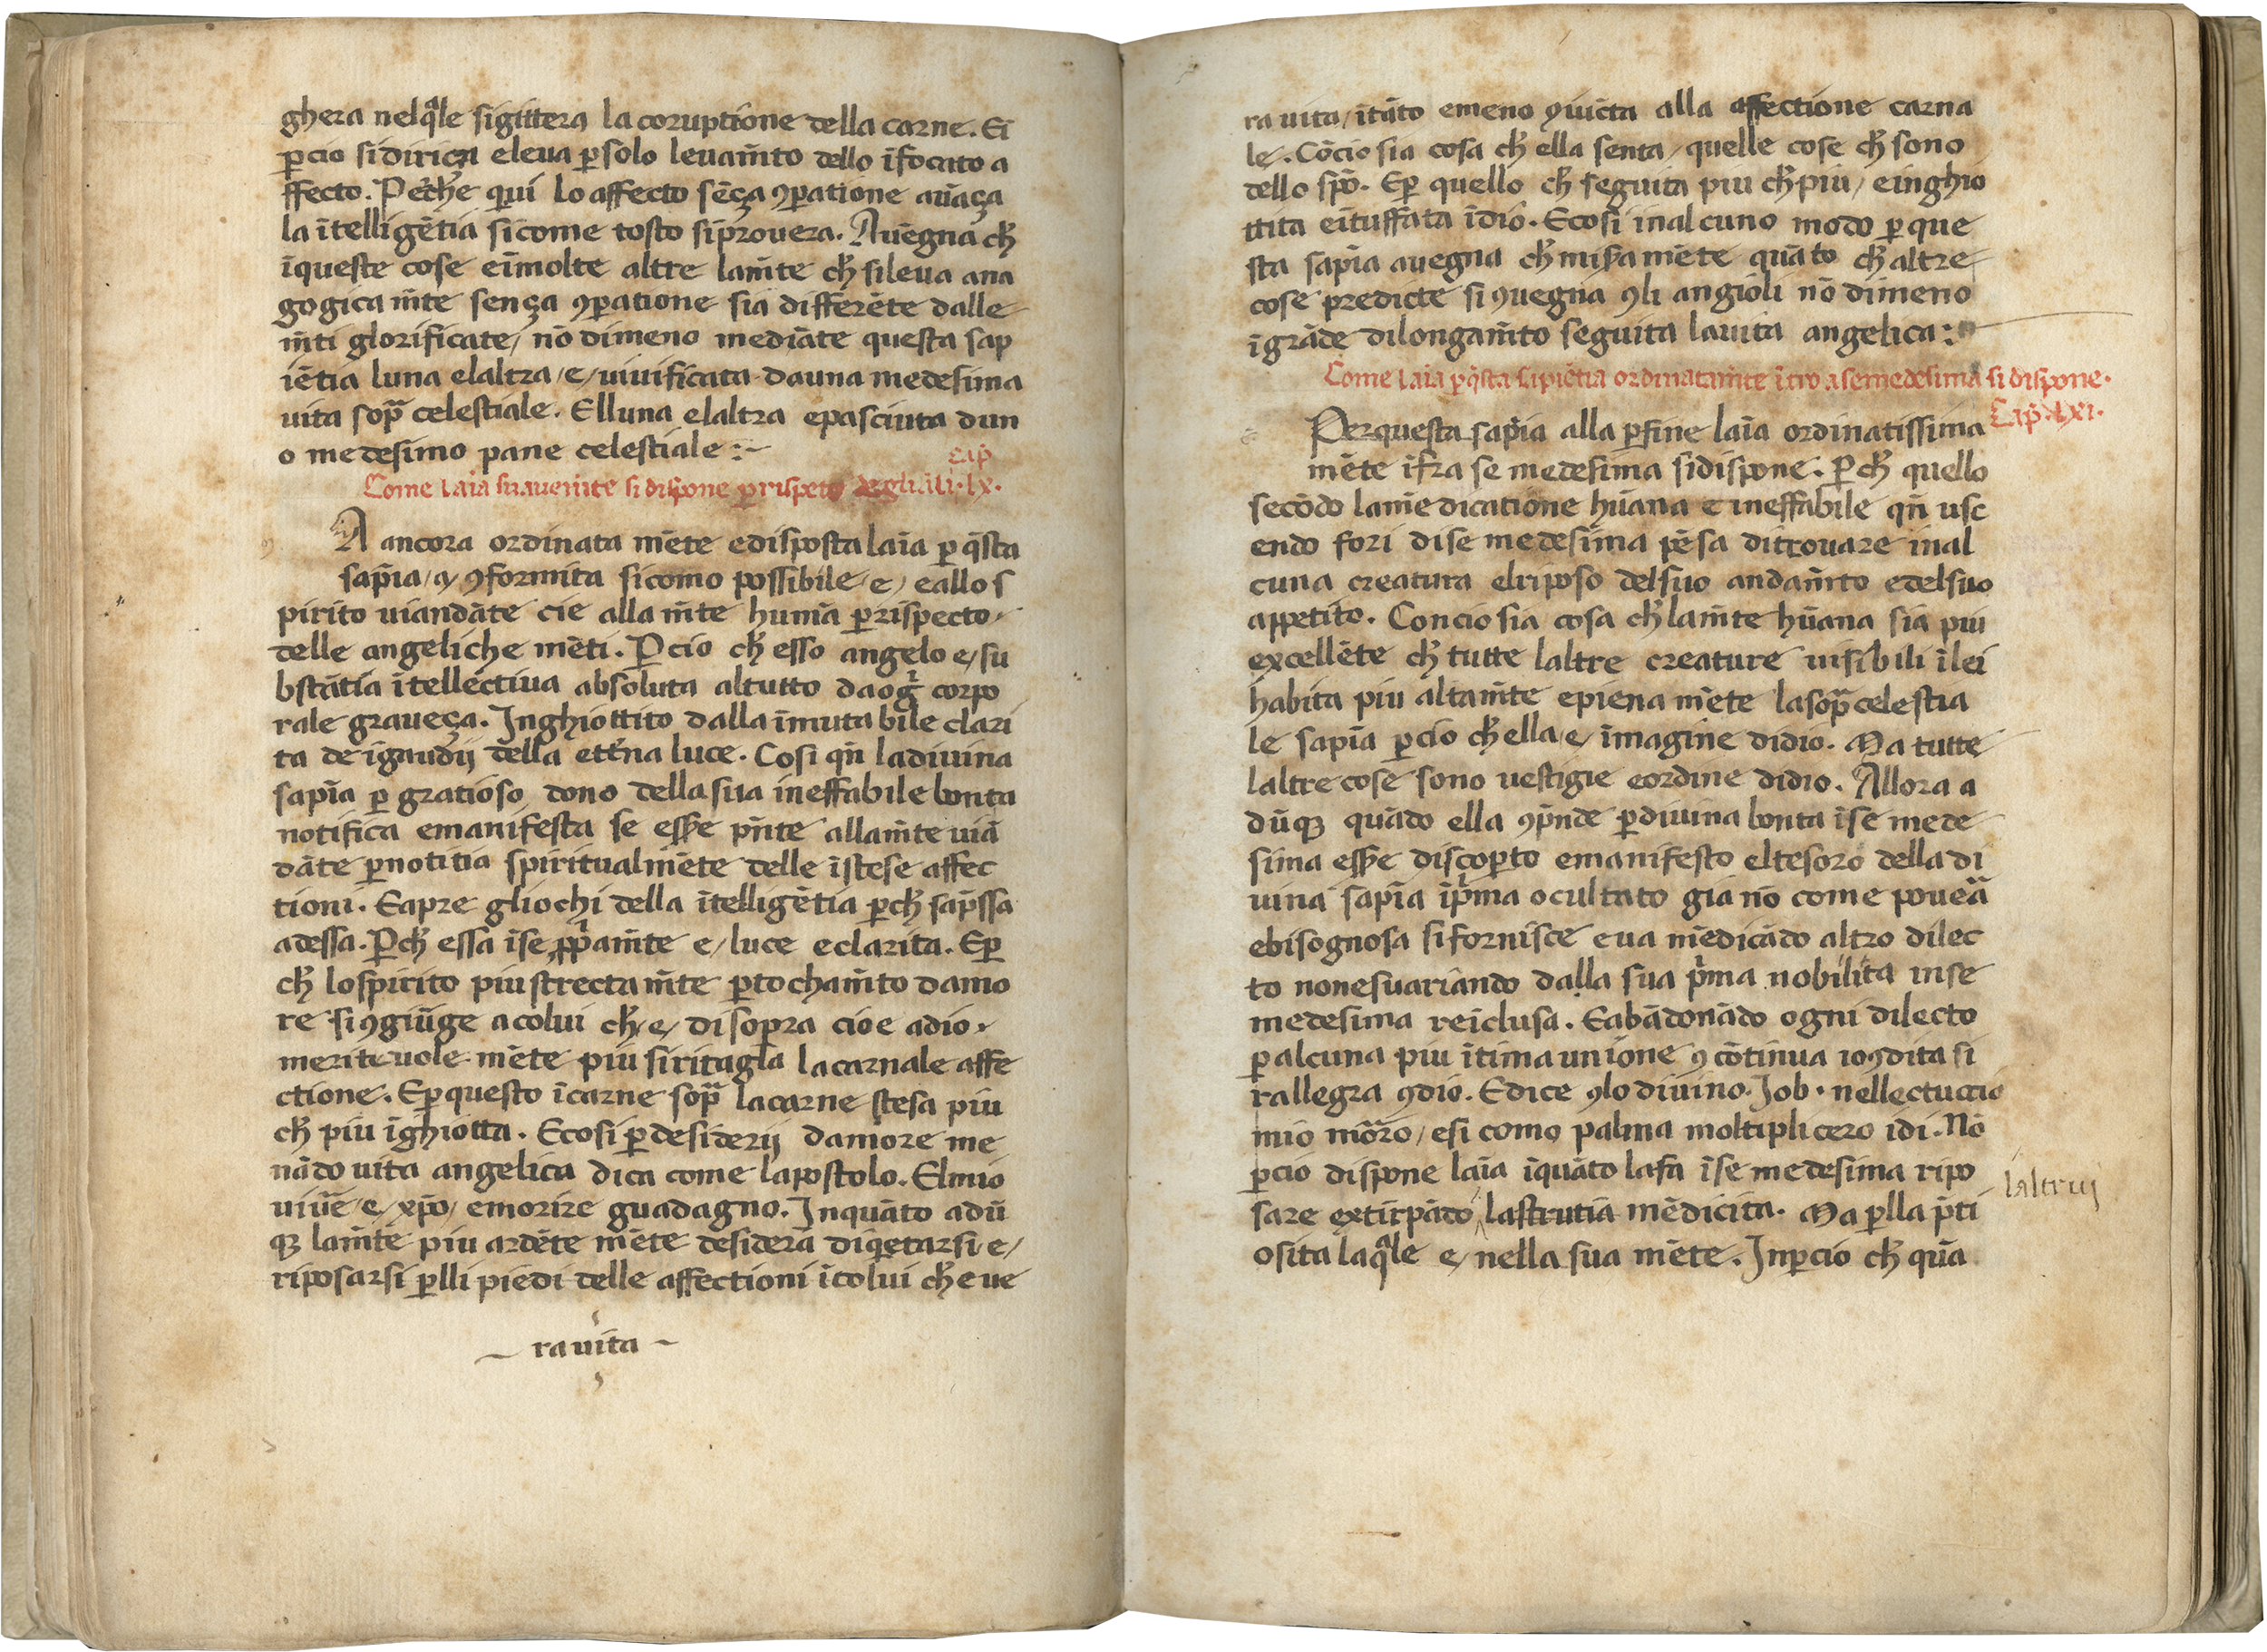 ghera nelq̃le sigittera la coruptione della carne. Ei
ꝑcio sidiriça eleua ꝑsolo leuam̄to dello īfocato a
ffecto. Perche qui lo affecto sēça ꝯꝑatione auāça
la ītelligētia sicome tosto siprouera. Auēgna cħ
īqueste cose eīmolte altre lam̄te cħ sileua ana
gogica m̄te sença ꝯꝑatione sia differēte dalle
m̄ti glorificate/ nō dimeno mediāte questa sap
iētia luna elaltra/e/uiuificata dauna medesima
uita sop̃ celestiale. Elluna elaltra epasciuta dun
o medesimo pane celestiale :~
cap̄
Come laīa suauem̄te si dispone ꝑ rispeto degliāli. lx.
A ancora ordinata mēte edisposta laīa ꝑ q̄sta
sapīa/ ꝯformita sicomo possibile/e/ eallo s
pirito uiandāte cie alla m̄te humāa ꝑrispecto
delle angeliche mēti. Ꝑcio cħ esso angelo e/su
bstātia ītellectiua absoluta altutto daog̃ corpo
rale graueça. Inghiottito dalla īmutabile clari
ta de īgaudij della etterna luce. Cosi qn̄ ladiuina
sapīa ꝑ gratioso dono della sua ineffabile bonta
notifica emanifesta se esse pn̄te allam̄te uiā
dāte ꝑnotitia spiritualmēte delle īstese affec
tioni. Eapre gliochi della ītelligētia ꝑcħ sap̄ssa
adessa. Ꝑcħ essa īse ꝓpam̄te e/luce eclarita. Eꝑ
cħ lospirito piu strectam̄te ꝑtocham̄to damo
re si ꝯgiūge acolui cħ/e/ disopra cioe adio.
meriteuole mēte piu siritaglia lacarnale affe
ctione. Eꝑquesto īcarne sop̃ lacarne stesa piu
cħ piu īghiotta. Ecosi ꝑdesiderij damore me
nādo uita angelica dica come lapostolo. Elmio
uiuē/e/xp̄o/ emorire guadagno. Inquāto adū
qꝫ lam̄te piu ardēte mēte desidera diq̄etarsi e/
riposarsi ꝑlli piedi delle affectioni īcolui cħ e ue
ra uita
ra uita/ itāto emeno ꝯuicta alla affectione carna
le. Cōcio sia cosa cħ ella senta/quelle cose cħ sono
dello sp̄o. Eꝑ quello cħ seguita piu cħ piu/ einghio
ttita eituffata īdio. Ecosi inalcuno modo ꝑque
sta sapīa auegna cħ mis̃amēte quāto cħ altre
cose predicte si ꝯuegna ꝯli angioli nō dimeno
īgrāde dilongam̄to seguita lauita angelica :
Come laīa ꝑq̄sta sapiētia ordinatam̄te ītro asemedesima si dispone.
Cap̄. lxi.
Perquesta sapīa alla ꝑfine laīa ordinatissima
mēte īfra se medesima sidispone. Ꝑcħ quello
secōdo lamedicatione hūana e ineffabile qn̄ usc
endo fori dise medesima pēsa ditrouare inal
cuna creatura elriposo delsuo andam̄to edelsuo
appetito. Concio sia cosa cħ lam̄te hūana sia piu
excellēte cħ tutte laltre creature uisibili īlei
habita piu altam̄te epiena mēte lasop̃celestia
le sapīa ꝑcio cħ ella/e/ īmagine didio. Ma tutte
laltre cose sono uestigie eordine didio. Allora a
dūqꝫ quādo ella ꝯp̄nde ꝑdiuina bonta īse mede
sima esse discoꝑto emanifesto eltesoro della di
uina sapīa īp̄ma ocultato gia nō come pouea
ebisognosa sifornisce eua mēdicādo altro dilec
to nonesuariando dalla sua p̄ma nobilita inse
medesima reiclusa. Eabādonādo ogni dilecto
ꝑ alcuna piu ītima unione ꝯ cōtinua iocōdita si
rallegra ꝯdio. Edice ꝯlo diuino. Job. nellectuccio
mio moro/ esi como palma moltiplicero idi. Nō
ꝑcio dispone laīa īquāto lafa īse medesima ripo
sare extirpādo lastrutiā mēdicita. Ma ꝑlla p̄ti
laltrui
osita laq̃le e/ nella sua mēte. Inꝑcio cħ quā